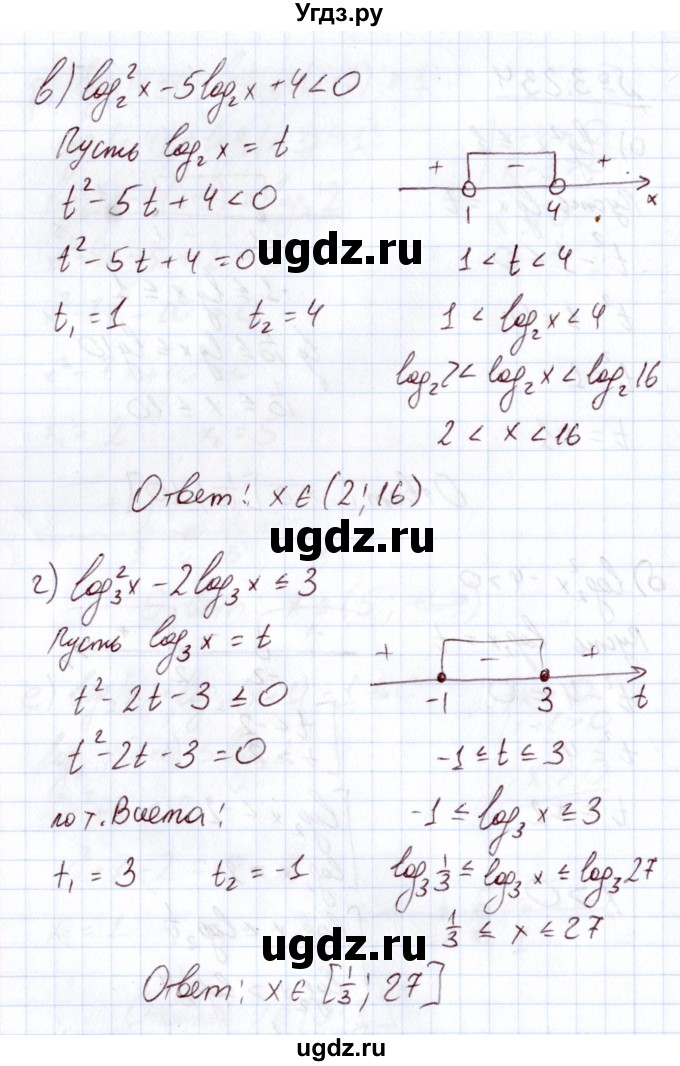 Угдз.ру
в) log₂²x - 5log₂x + 4 < 0
Пусть log₂x = t
t² - 5t + 4 < 0
+ - +
1 4 x
t² - 5t + 4 = 0
1 < t < 4
ugdz.ru
t₁ = 1 t₂ = 4
1 < log₂x < 4
log₂2 < log₂x < log₂16
2 < x < 16
Ответ: x ∈ (2; 16)
ugdz.ru
г) log₃²x - 2log₃x ≤ 3
Пусть log₃x = t
t² - 2t - 3 ≤ 0
+ - +
-1 3 t
t² - 2t - 3 = 0
-1 ≤ t ≤ 3
ugdz.ru
по т. Виета:
-1 ≤ log₃x ≤ 3
t₁ = 3 t₂ = -1
log₃⅓ ≤ log₃x ≤ log₃27
⅓ ≤ x ≤ 27
ugdz.ru
Ответ: x ∈ [⅓; 27]
ugdz.ru